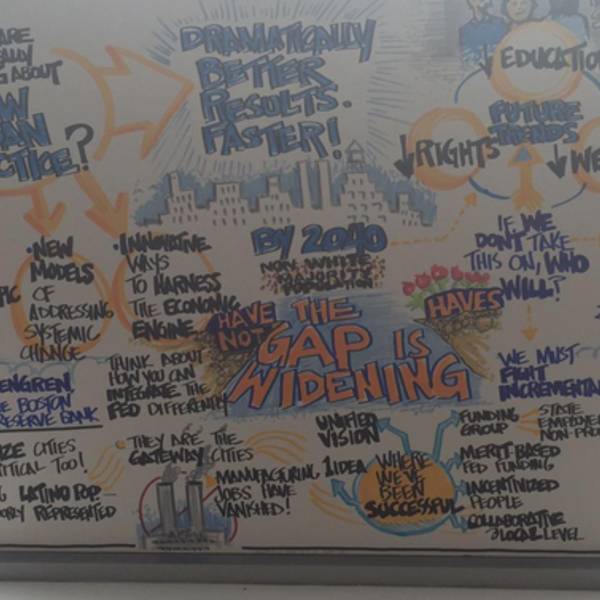 ARE
ABOUT
CTICE?
DRAMATICALLY
BETTER
RESULTS.
FASTER!
↓ EDUCATIO
FUTURE
TRENDS
↓ RIGHTS
↓ WE
• NEW
MODELS
OF
ADDRESSING
SYSTEMIC
CHANGE
• INNOVATIVE
WAYS
TO HARNESS
THE ECONOMIC
ENGINE
BY 2040
NON-WHITE
MAJORITY
POPULATION
IF WE
DON'T TAKE
THIS ON, WHO
WILL?
HAVE
NOT
HAVES
THE
GAP IS
WIDENING
THINK ABOUT
HOW YOU CAN
INTEGRATE THE
FED DIFFERENTLY
ENGREN
BOSTON
RESERVE BANK
WE MUST
FIGHT
INCREMENTA
ZE CITIES
ITICAL TOO!
LATINO POP.
ORLY REPRESENTED
• THEY ARE THE
GATEWAY CITIES
MANUFACTURING
JOBS HAVE
VANISHED!
UNIFIED
VISION
1 IDEA
WHERE
WE'VE
BEEN
SUCCESSFUL
FUNDING
GROUP
STATE
EMPLOYE
NON-PRO
MERIT-BASED
FED FUNDING
INCENTIVIZED
PEOPLE
COLLABORATIVE
LOCAL LEVEL